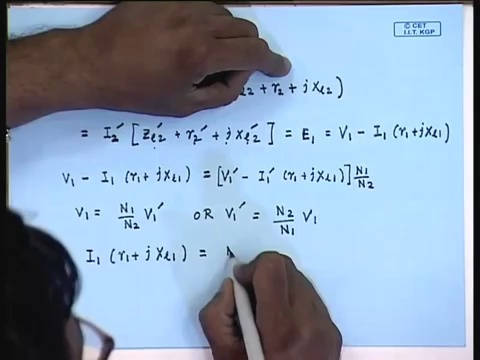 © CET
I.I.T. KGP
+ r₂ + j x_l2)
= I₂′ [ Z_l2′ + r₂′ + j x_l2′ ] = E₁ = V₁ - I₁ (r₁+jx_l1)
V₁ - I₁ (r₁+jx_l1) = [V₁′ - I₁′ (r₁+jx_l1)] N₁/N₂
V₁ = N₁/N₂ V₁′ OR V₁′ = N₂/N₁ V₁
I₁ (r₁+j x_l1) =